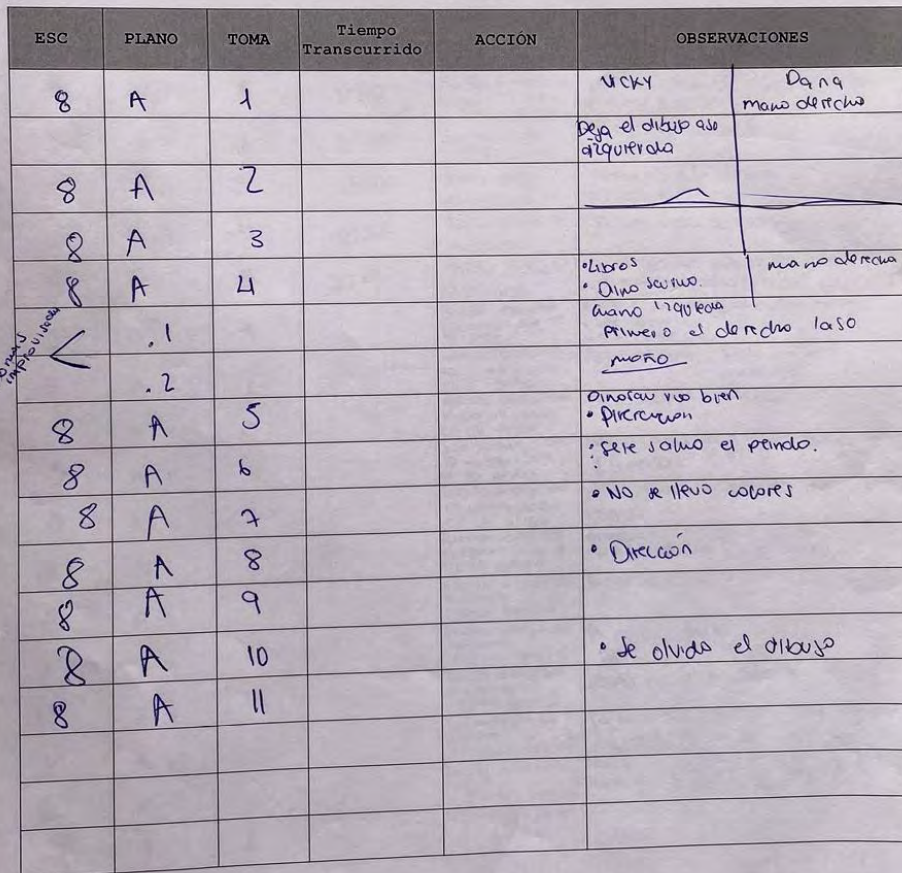 ESC PLANO TOMA Tiempo Transcurrido ACCIÓN OBSERVACIONES
8 A 1 Vicky Dana
mano derecho
Deja el dibujo
izquierda
8 A 2
8 A 3
8 A 4 •Libros mano derecha
•
mano izquieda
.1 Primero el derecho laso
improvisadas
.2 moño
bien
8 A 5
8 A 6 • salio el
8 A 7 • No se llevo colores
8 A 8 • Dirección
8 A 9
8 A 10 • Se olvido el dibujo
8 A 11